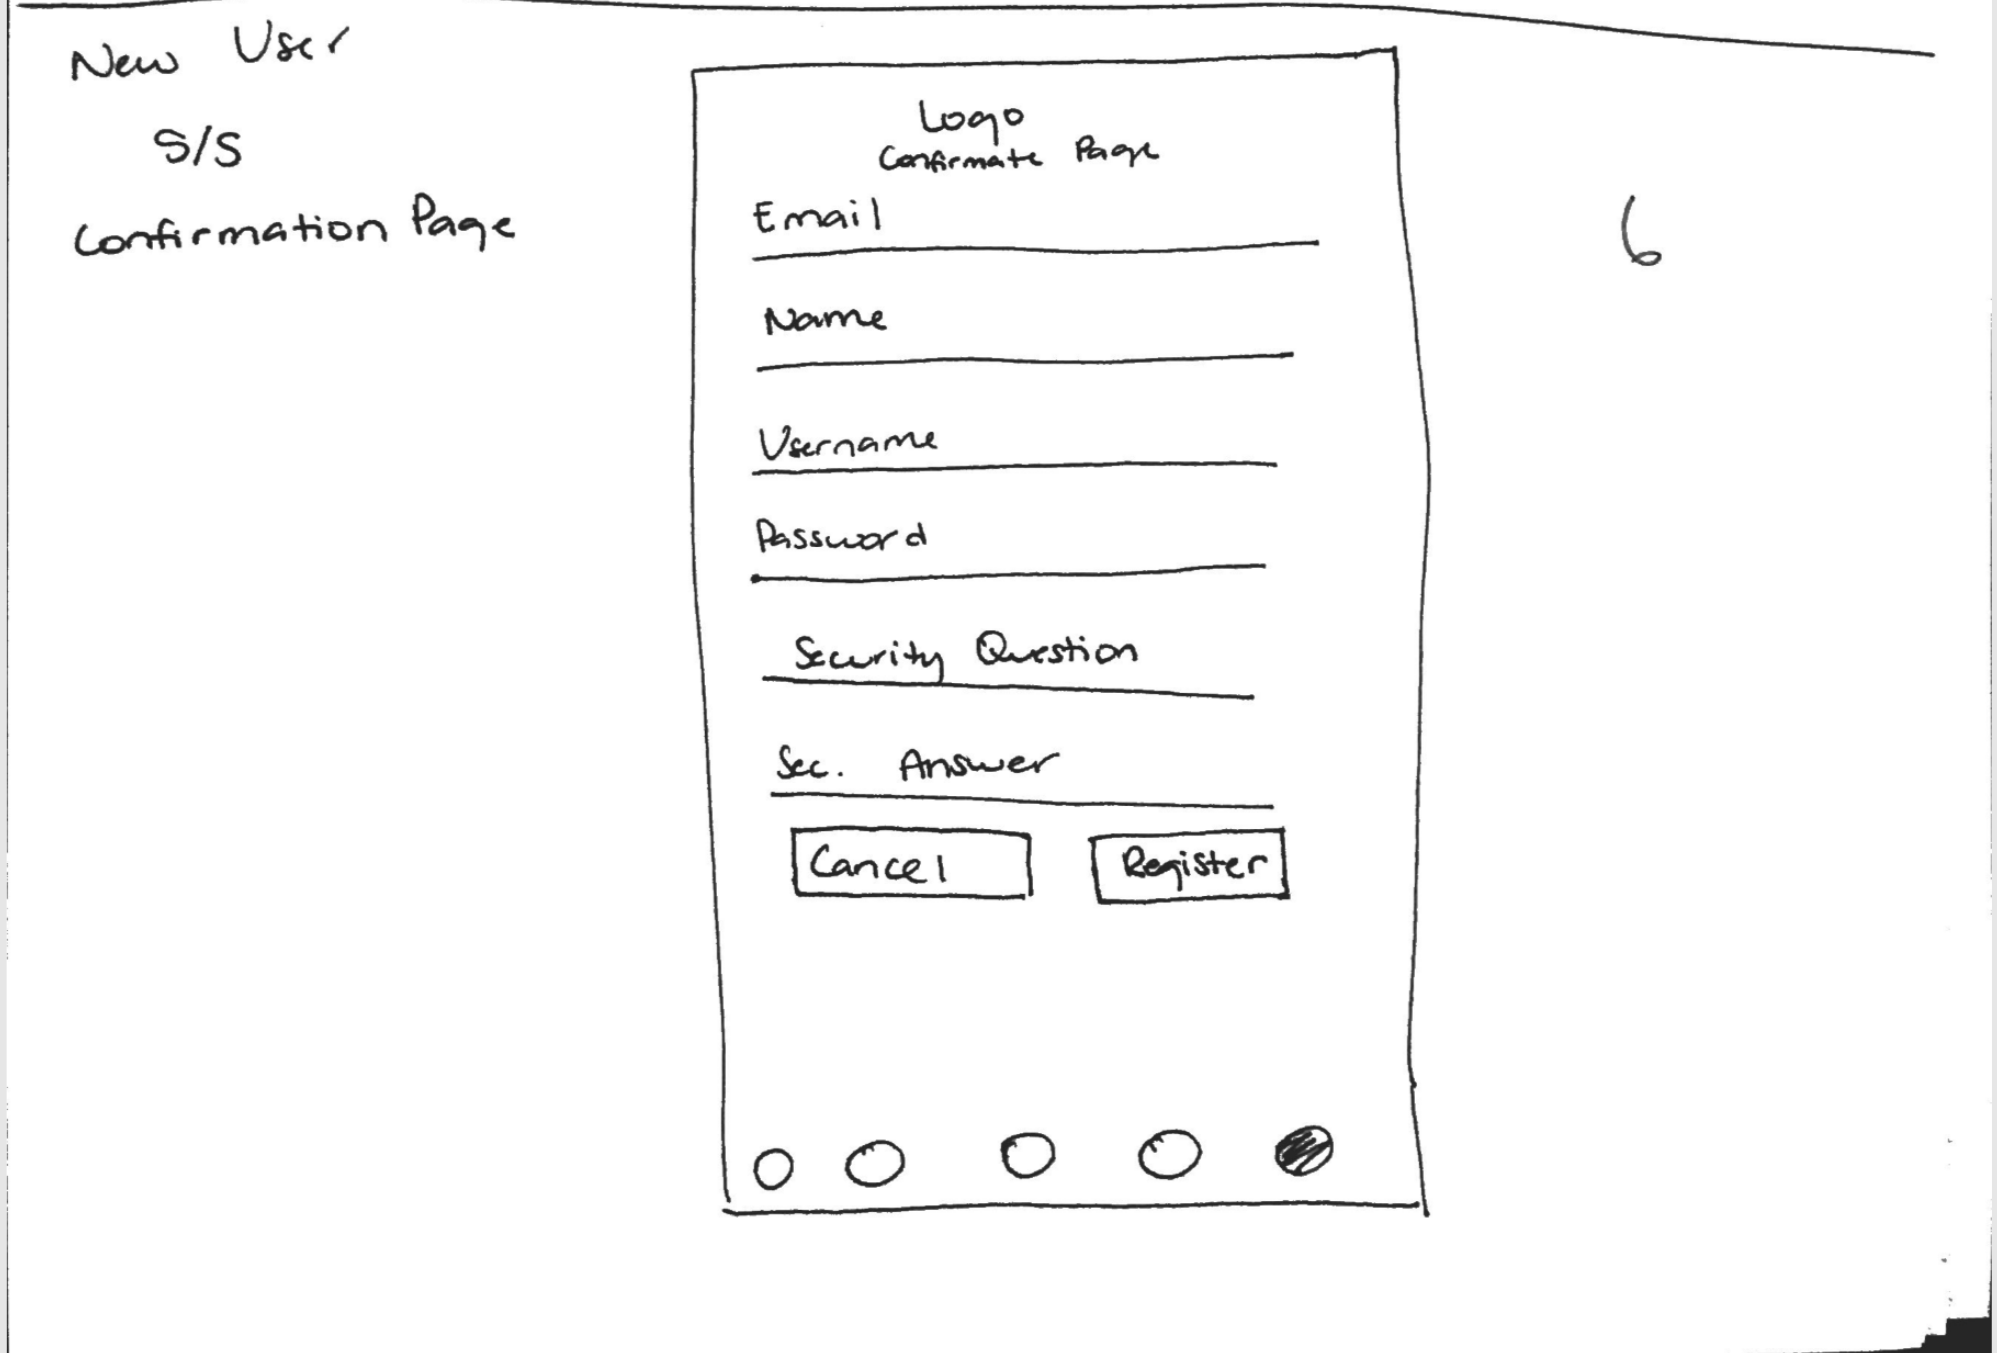 New User
S/S
Confirmation Page
Logo
Confirmate Page
Email
Name
Username
Password
Security Question
Sec. Answer
Cancel
Register
6